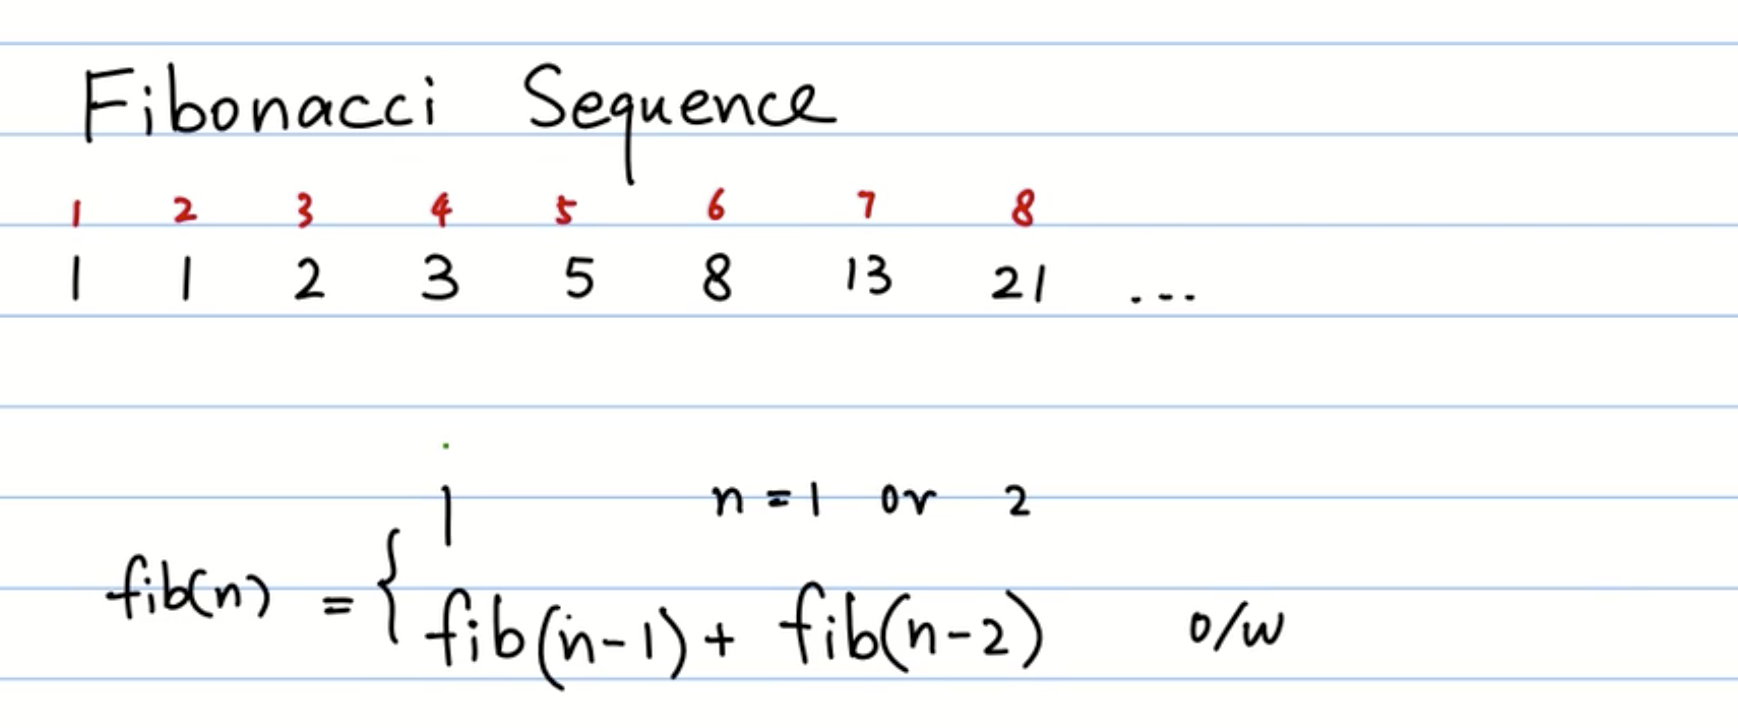 Fibonacci Sequence
1 2 3 4 5 6 7 8
1 1 2 3 5 8 13 21 ...
1 n = 1 or 2
fib(n) = {
fib(n-1) + fib(n-2) o/w